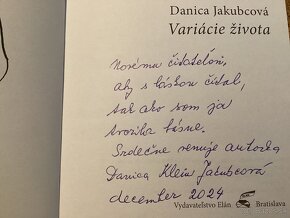 Danica Jakubcová
Variácie života
Novému čitateľovi,
aby s láskou čítal,
tak ako som ja
tvorila básne.
Srdečne venuje autorka
Danica Klein Jakubcová
december 2024
Vydavateľstvo Elán
Bratislava